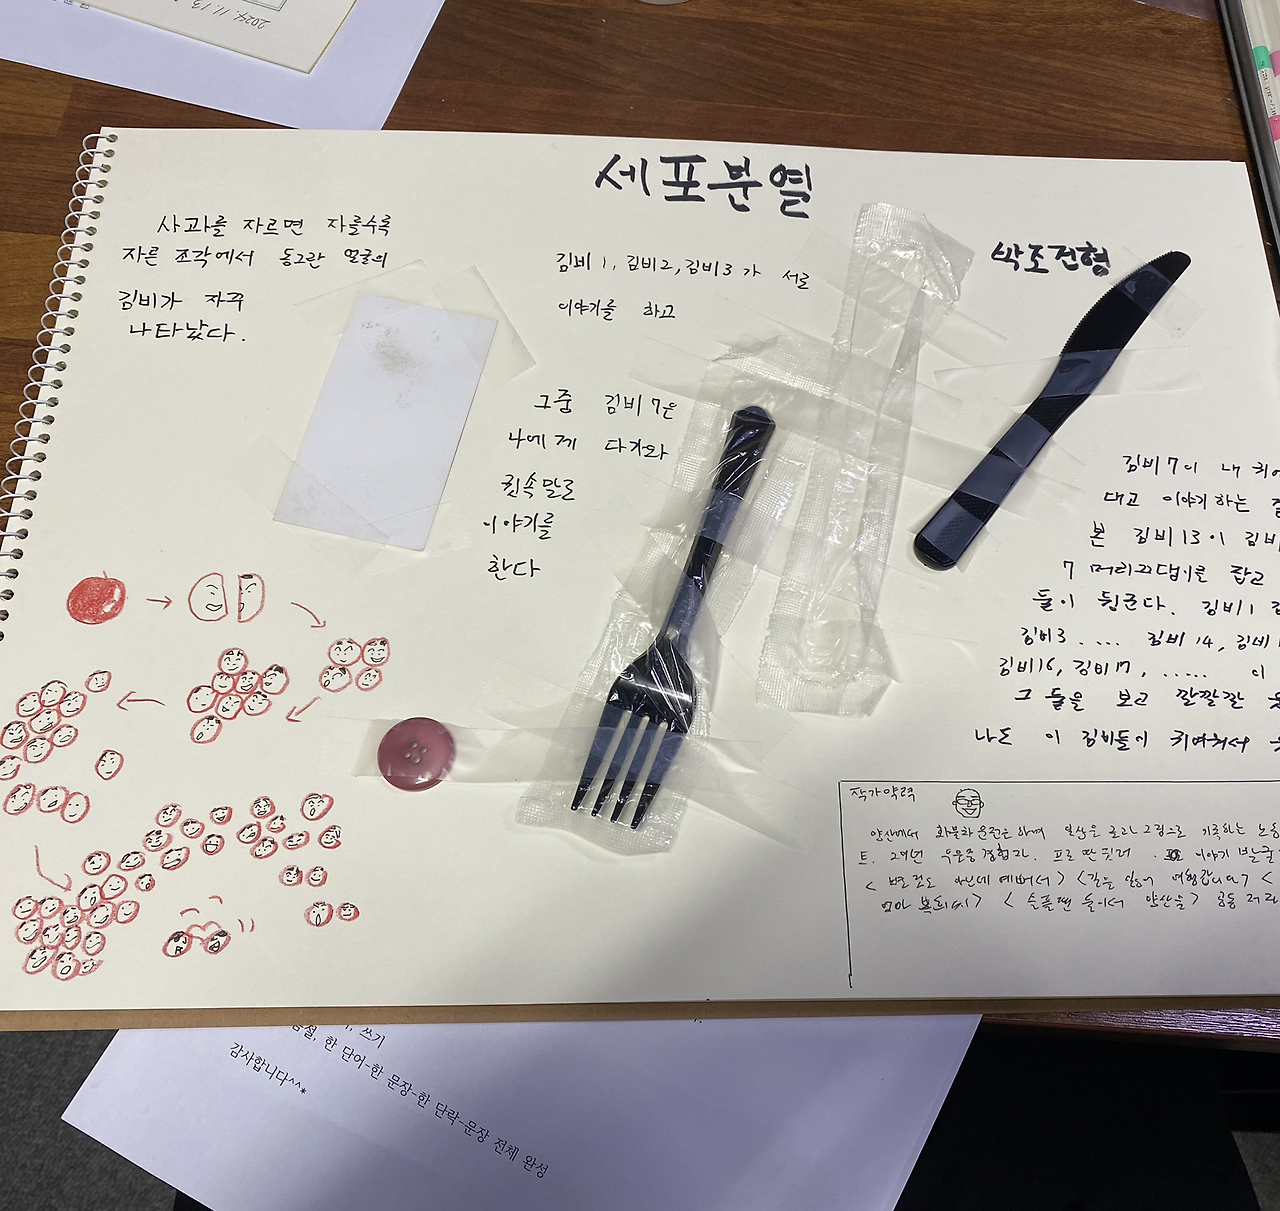 2024. 11. 13
세포분열
박조건형
사과를 자르면 자를수록
자른 조각에서 동그란 얼굴의
김비가 자꾸
나타났다.
김비 1, 김비2, 김비3 가 서로
이야기를 하고
그중 김비 7은
나에게 다가와
귓속말로
이야기를
한다
김비 7이 내 귀에
대고 이야기하는 걸
본 김비 13이 김비
7 머리끄댕이를 잡고
둘이 뒹군다. 김비1
김비3 .... 김비 14, 김비
김비16, 김비17, ..... 이
그 둘을 보고 깔깔깔
나도 이 김비들이 귀여워서
작가약력
양산에서 화물차 운전을 하며 일상을 글과 그림으로 기록하는
트. 29년 우울증 경험자. 프로 딴짓러. 이야기
< 별것도 아닌데 예뻐서 > < 길을 잃어 여행갑니다 > <
> < 슬플 땐 둘이서 양산을 > 공동 저자
쓰기
한 단어-한 문장-한 단락-문장 전체 완성
감사합니다^^*